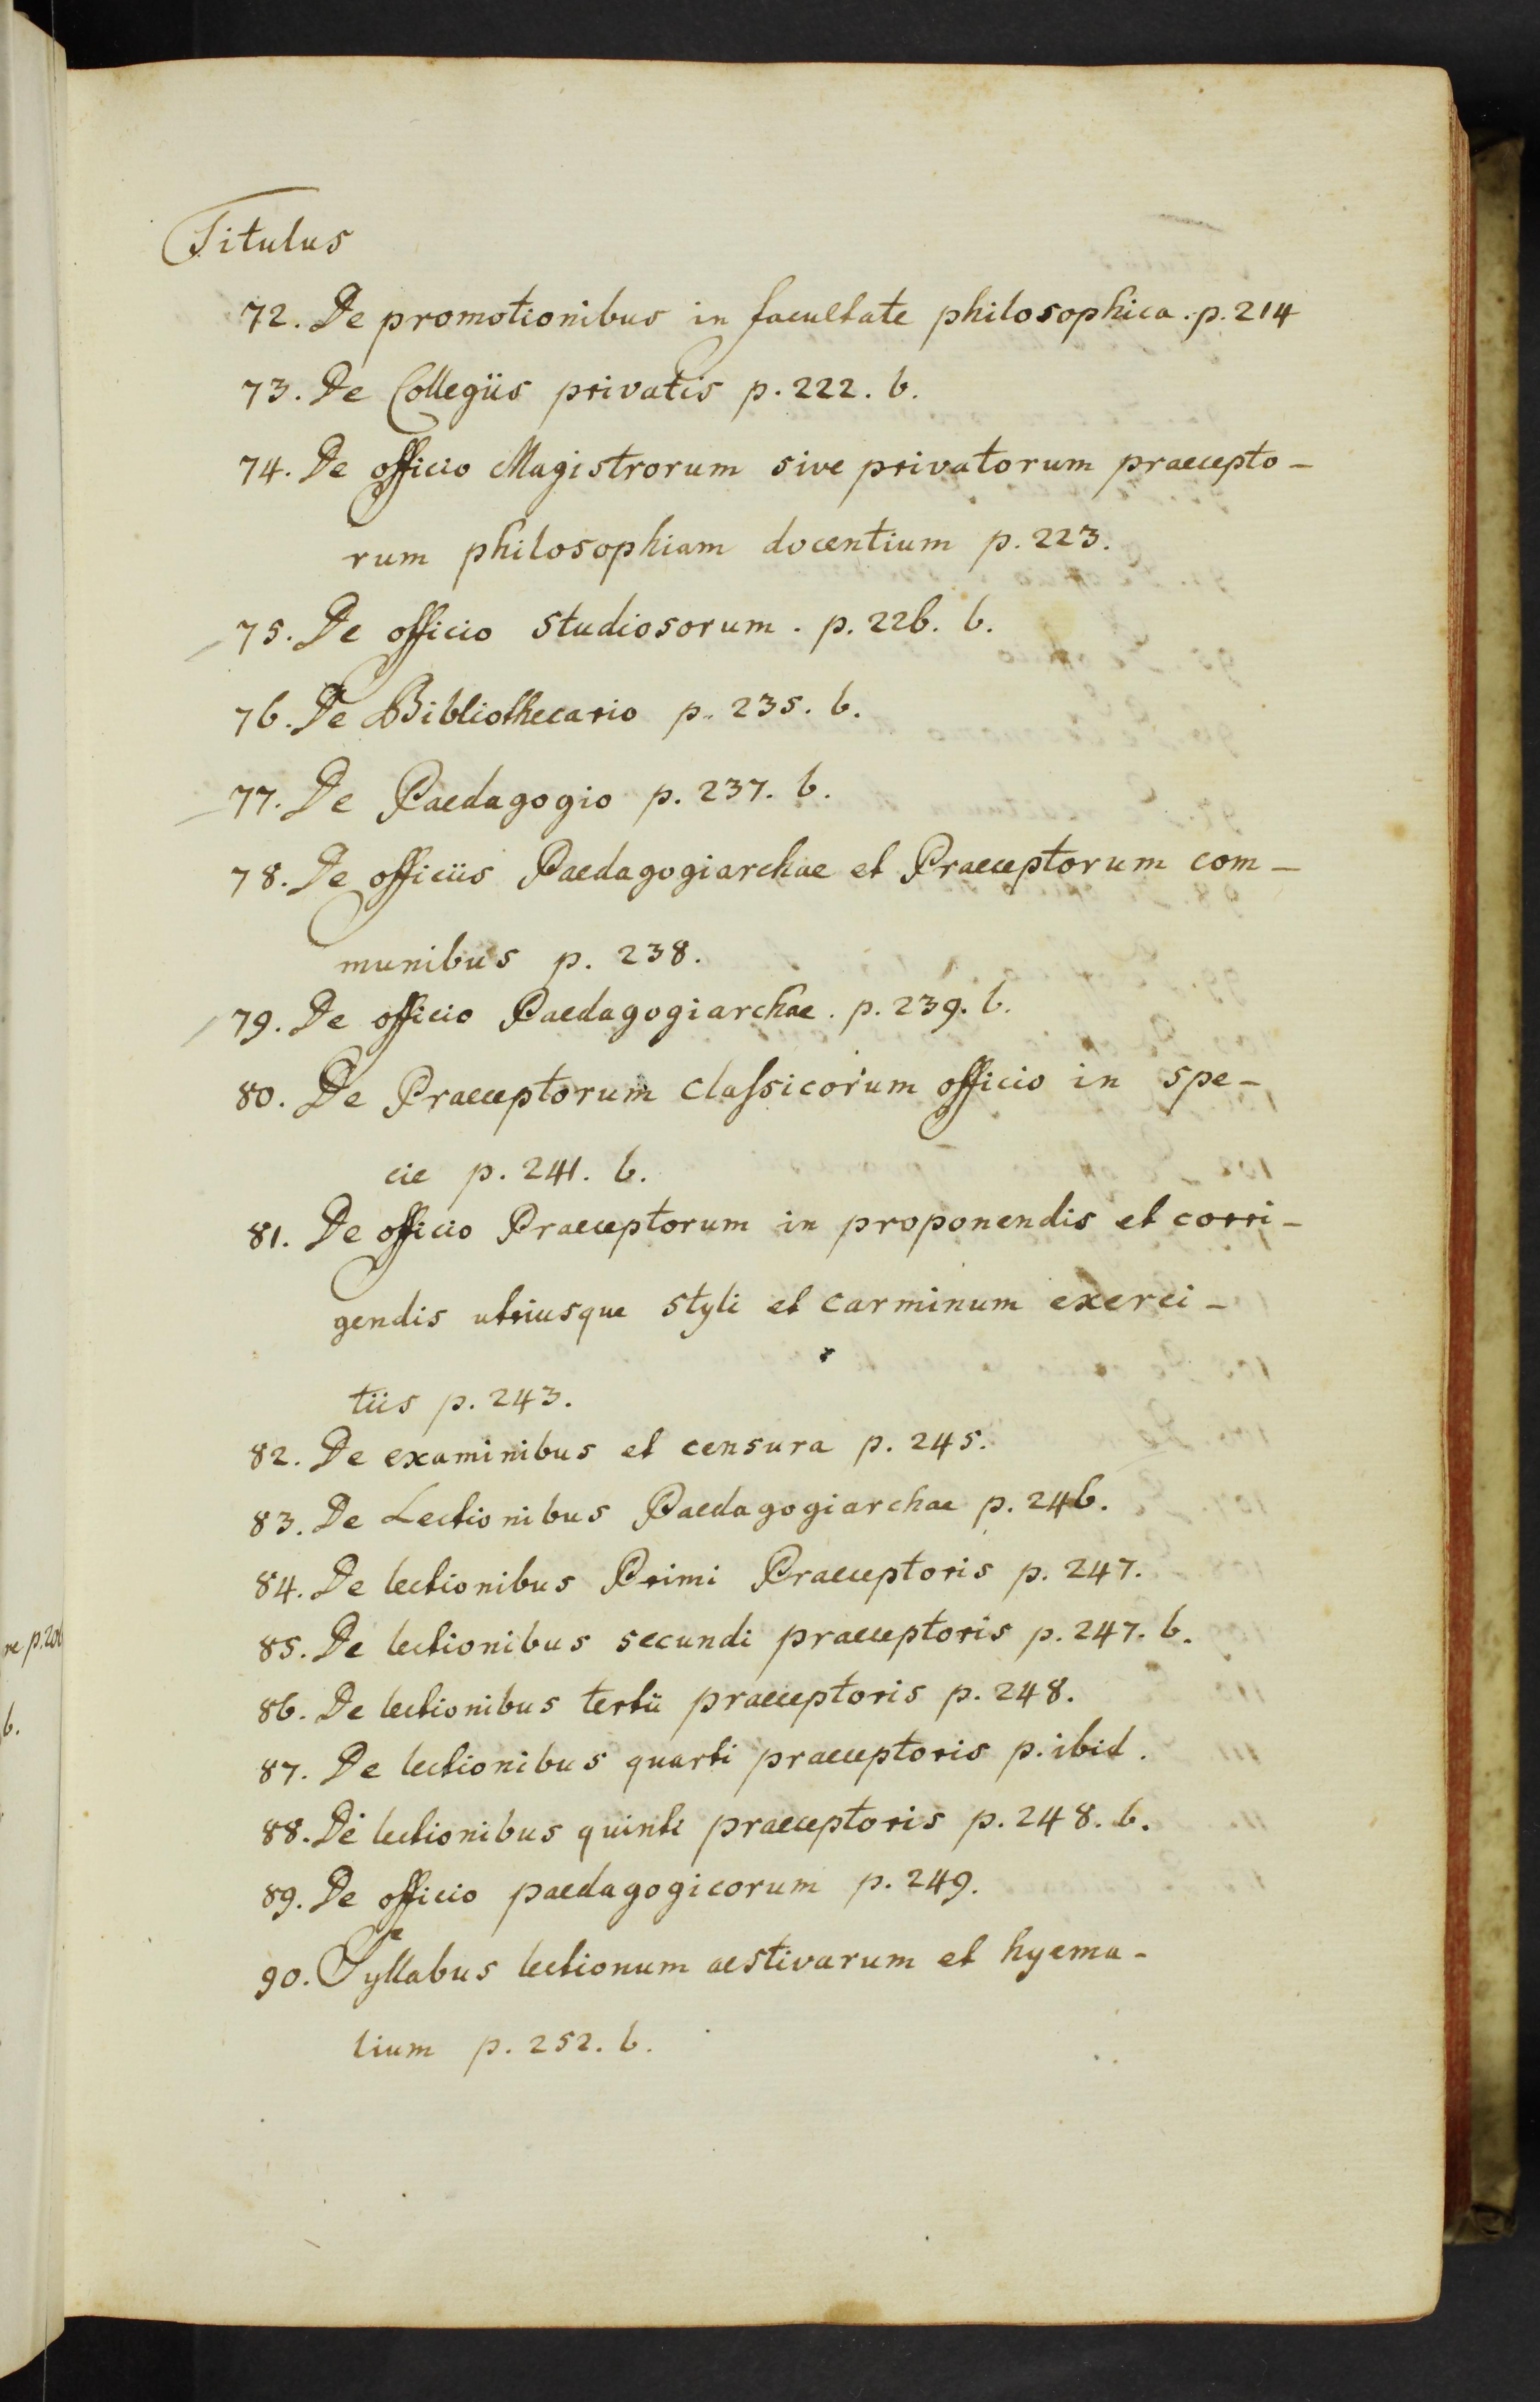 Titulus
72. De promotionibus in facultate philosophica. p. 214
73. De Collegiis privatis p. 222. b.
74. De officio Magistrorum sive privatorum praecepto-
rum philosophiam docentium p. 223.
75. De officio studiosorum. p. 226. b.
76. De Bibliothecario p. 235. b.
77. De Paedagogio p. 237. b.
78. De officiis Paedagogiarchae et Praeceptorum com-
munibus p. 238.
79. De officio Paedagogiarchae. p. 239. b.
80. De Praeceptorum classicorum officio in spe-
cie p. 241. b.
81. De officio Praeceptorum in proponendis et corri-
gendis utriusque styli et carminum exerci-
tiis p. 243.
82. De examinibus et censura p. 245.
83. De Lectionibus Paedagogiarchae p. 246.
84. De lectionibus Primi Praeceptoris p. 247.
85. De lectionibus secundi praeceptoris p. 247. b.
86. De lectionibus tertii praeceptoris p. 248.
87. De lectionibus quarti praeceptoris p. ibid.
88. De lectionibus quinti praeceptoris p. 248. b.
89. De officio paedagogicorum p. 249.
90. Syllabus lectionum aestivarum et hyema-
lium p. 252. b.